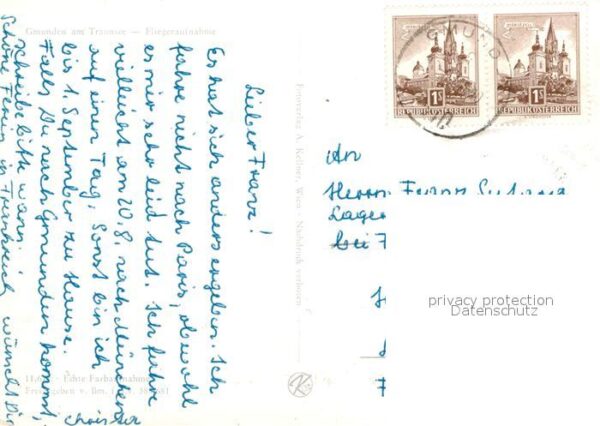 Gmunden am Traunsee — Fliegeraufnahme
Lieber Franz!
Es hat sich anders ergeben. Ich
fahre nicht nach Paris, obwohl
es mir sehr leid tut. Ich fahre
vielleicht am 20.8. nach München
auf einen Tag. Sonst bin ich
bis 1. September zu Hause.
Falls Du nach Gmunden kommst,
schreibe bitte wann.
Schöne Ferien in Frankreich wünscht Dir
Fotoverlag A. Kellner, Wien - Nachdruck verboten
Echte Farbaufnahme
GMUND
1S
REPUBLIK ÖSTERREICH
1S
REPUBLIK ÖSTERREICH
An
Herrn Franz
Lager
bei
privacy protection
Datenschutz